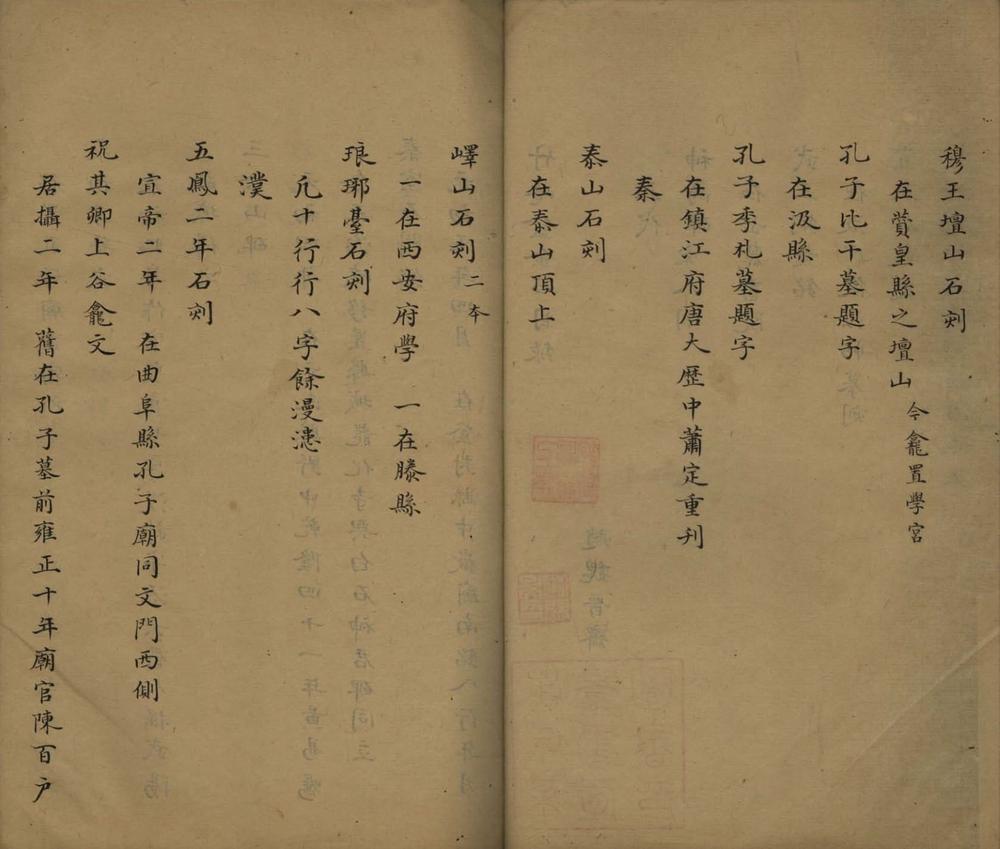 穆王壇山石刻
在贊皇縣之壇山 今龕置學宮
孔子比干墓題字
在汲縣
孔子季札墓題字
在鎮江府唐大歷中蕭定重刋
秦
泰山石刻
在泰山頂上
嶧山石刻二本
一在西安府學 一在滕縣
琅琊臺石刻
凢十行行八字餘漫漶
漢
五鳳二年石刻
宣帝二年 在曲阜縣孔子廟同文門西側
祝其卿上谷龕文
居攝二年 舊在孔子墓前雍正十年廟官陳百户